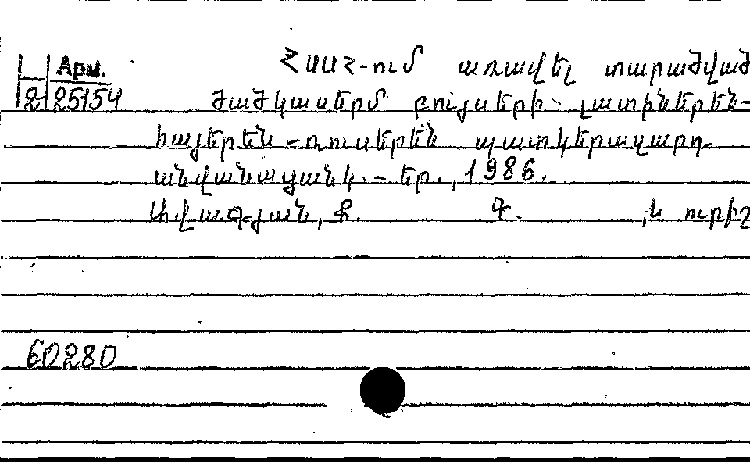 ՀՍՍՀ-ում առավել տարածված
Арм.
2 25154
ծածկասերմ բույսերի լատիներեն-
հայերեն-ռուսերեն պատկերազարդ
անվանացանկ.-Եր., 1986.
Ավագյան, Ք. Գ. ,և ուրիշ
60280